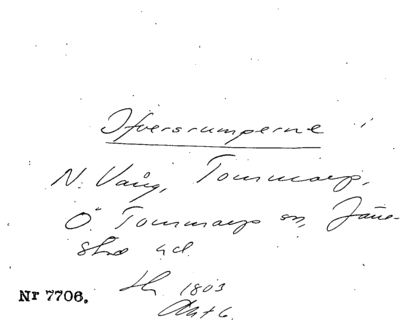 Ifversrumperne
N. Vång, Tommarp,
Ö. Tommarp sn, Järre-
stad hd.
1803
Nr 7706.